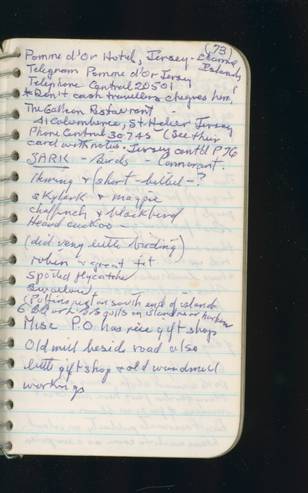 (73)
Pomme d'Or Hotel, Jersey - Channel Islands
Telegram Pomme d'Or Jersey
Telephone Central 20501
* Don't cash travellers cheques here!
The Galleon Restaurant
St. Helier Jersey
Phone Central 30745 (See their
card with notes. Jersey cont'd P76
SARK - Birds - Cormorant -
Herring & (short-billed-?
skylark & magpie
chaffinch & blackbird
Heard cuckoo -
(did very little birding)
robin & great tit
spotted flycatcher
swallow
(Puffins nest on south end of island
6 gulls on island near harbor
Misc P.O. has nice gift shop
Old mill beside road also
little gift shop & old windmill
workings